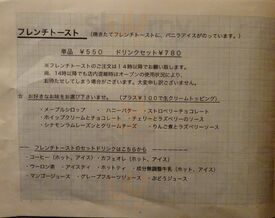 フレンチトースト （焼きたてフレンチトーストに、バニラアイスがのっています。）
単品 ￥550 ドリンクセット￥780
※フレンチトーストのご注文は14時以降でお願い致します。
尚、14時以降でも店内混雑時はオーブンの使用状況により
お待たせしてしまう場合がございます。大変申し訳ございません。
☆ お好きなお味をお選び下さい。（プラス￥100で生クリームトッピング）
・メープルシロップ ・ハニーバター ・ストロベリーチョコレート
・ホイップクリームとチョコレート ・チェリーとラズベリーのソース
・シナモンラムレーズンとクリームチーズ ・りんご煮とラズベリーソース
フレンチトーストのセットドリンクはこちらから
・コーヒー（ホット、アイス） ・カフェオレ（ホット、アイス）
・ウーロン茶 ・アイスティ ・ホットティ ・成分無調整牛乳（ホット、アイス）
・マンゴージュース ・グレープフルーツジュース ・ぶどうジュース